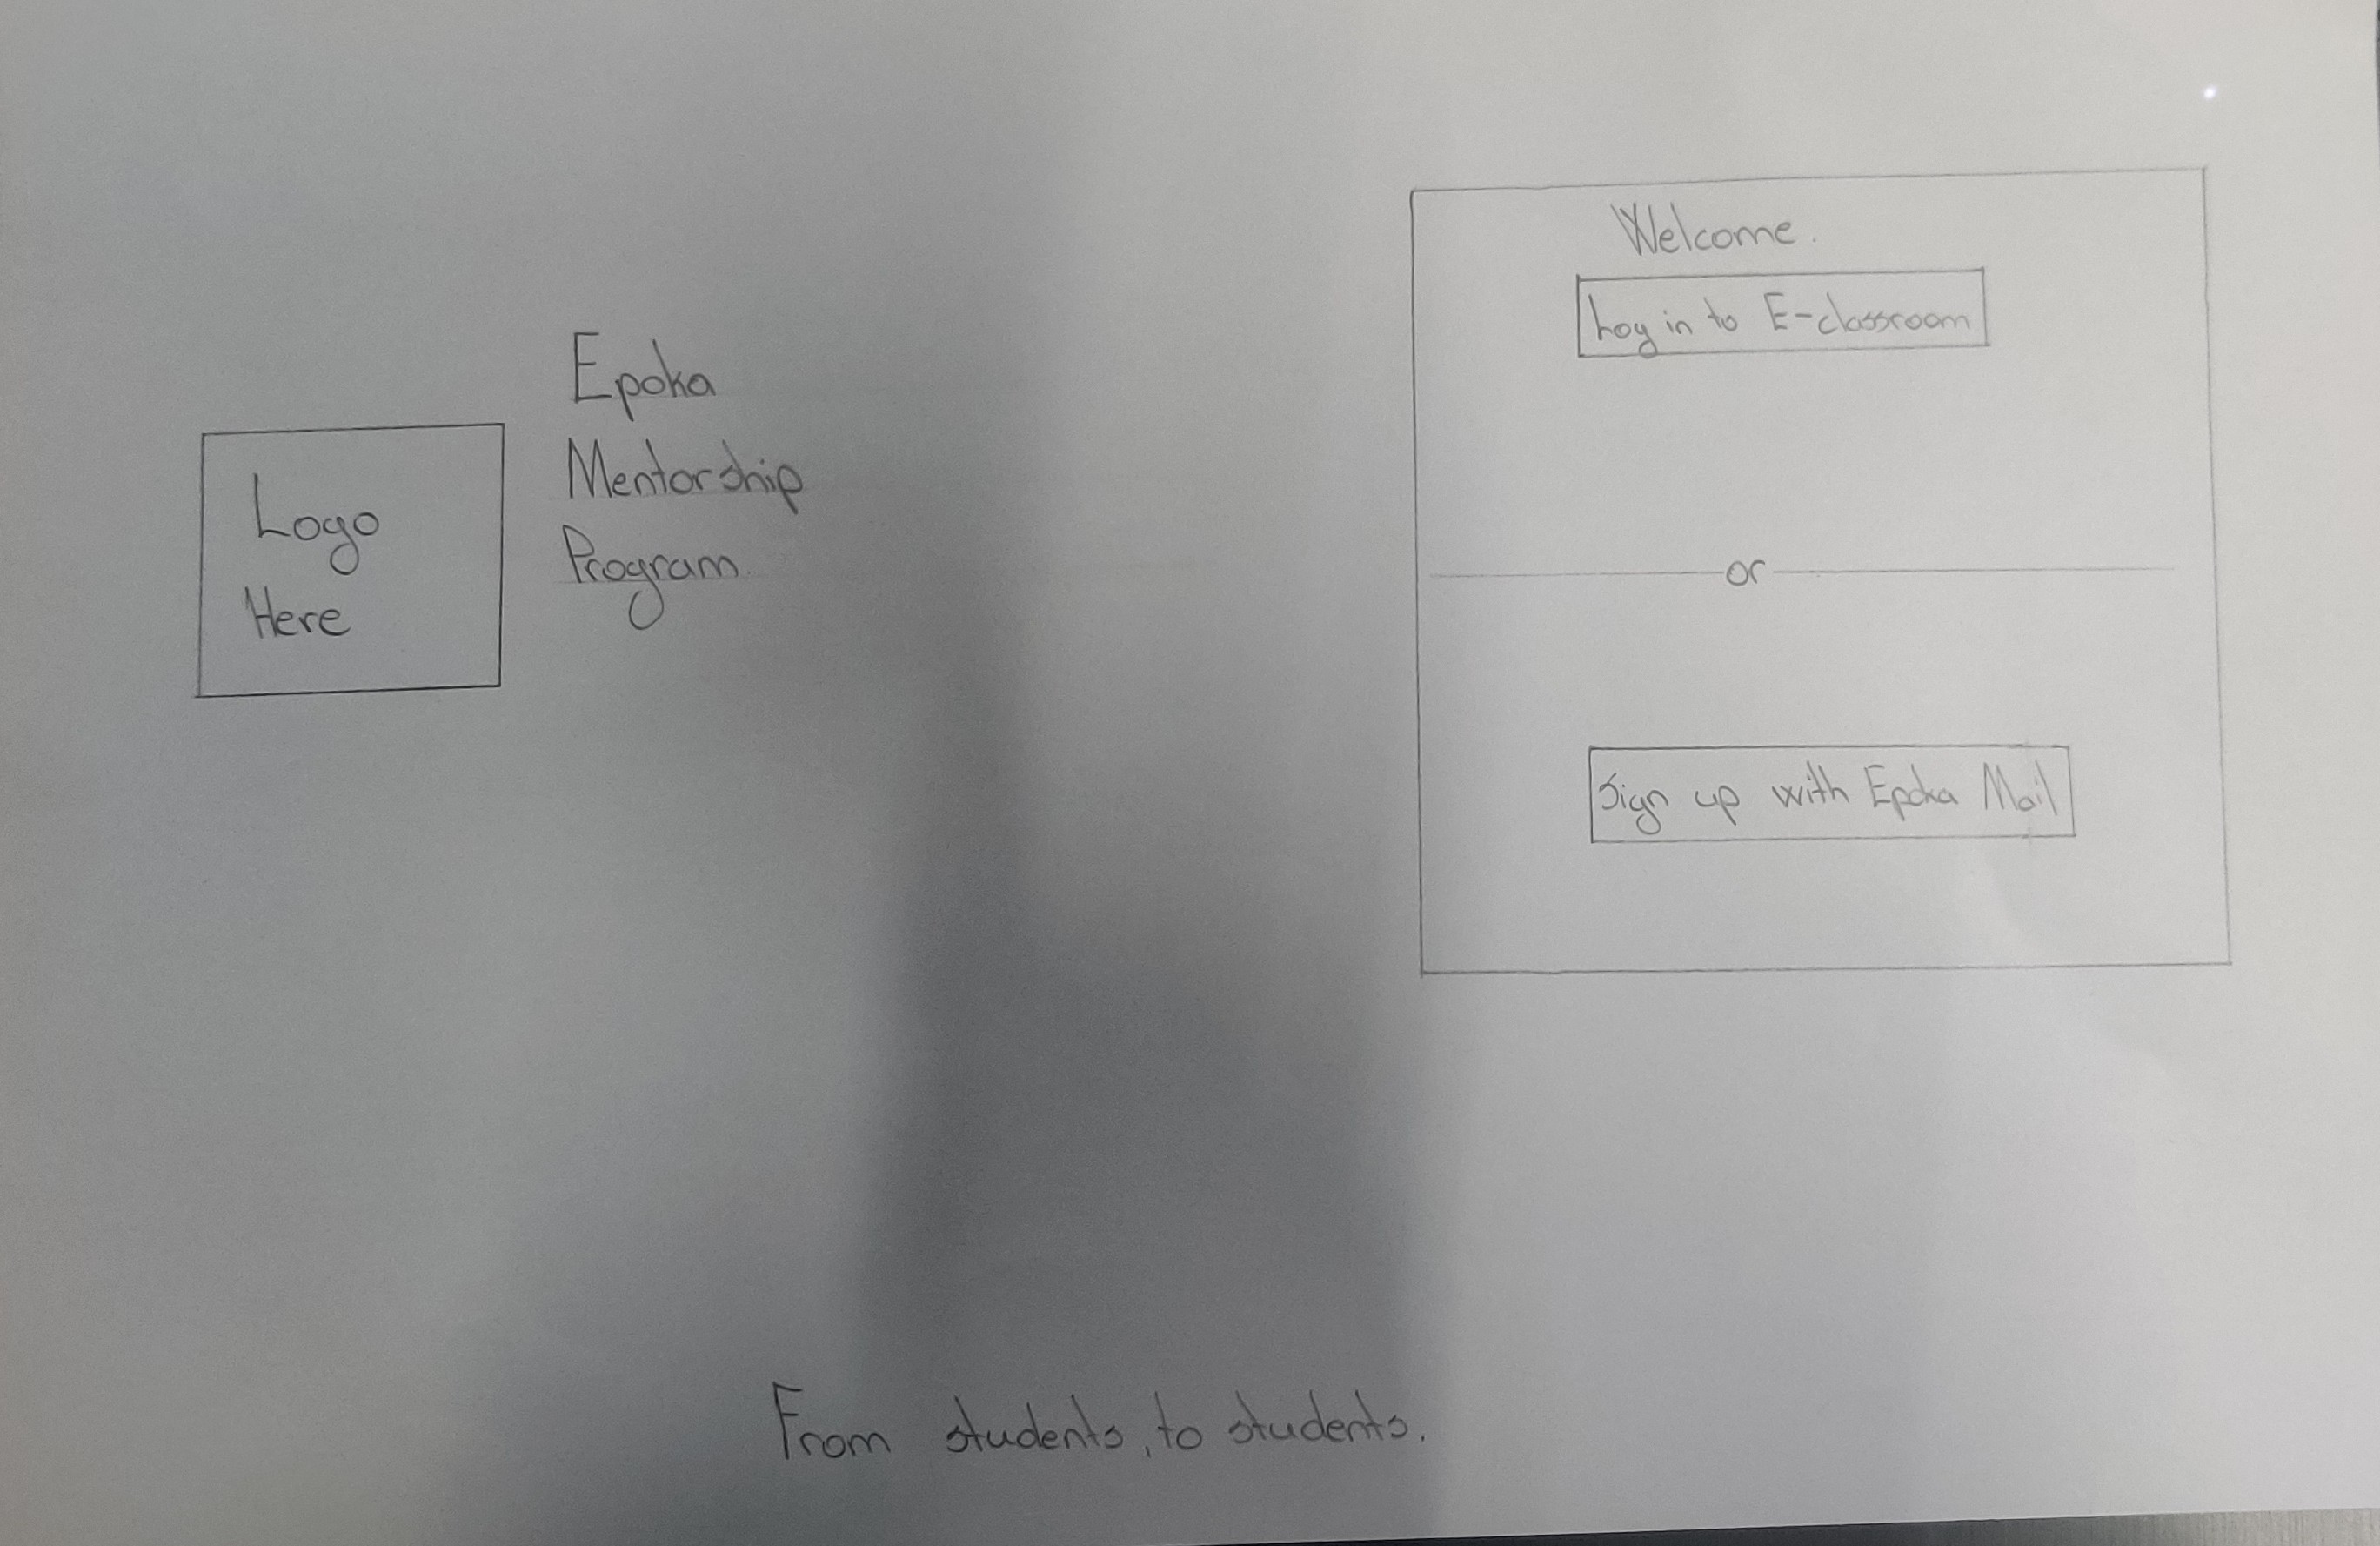 Logo
Here
Epoka
Mentorship
Program.
Welcome.
Log in to E-classroom
or
Sign up with Epoka Mail
From students, to students.